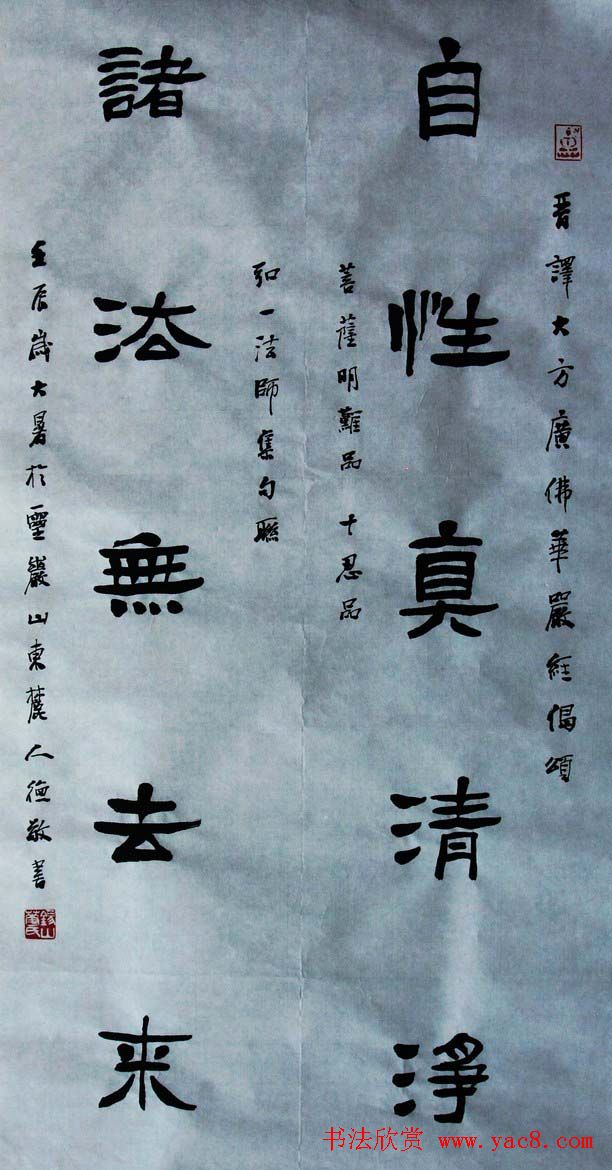 晉譯大方廣佛華嚴經偈頌
自性真清淨
菩薩明難品 十忍品
弘一法師集句聯
諸法無去来
壬辰歲大暑於靈巖山東麓人德敬書
书法欣赏 www.yac8.com